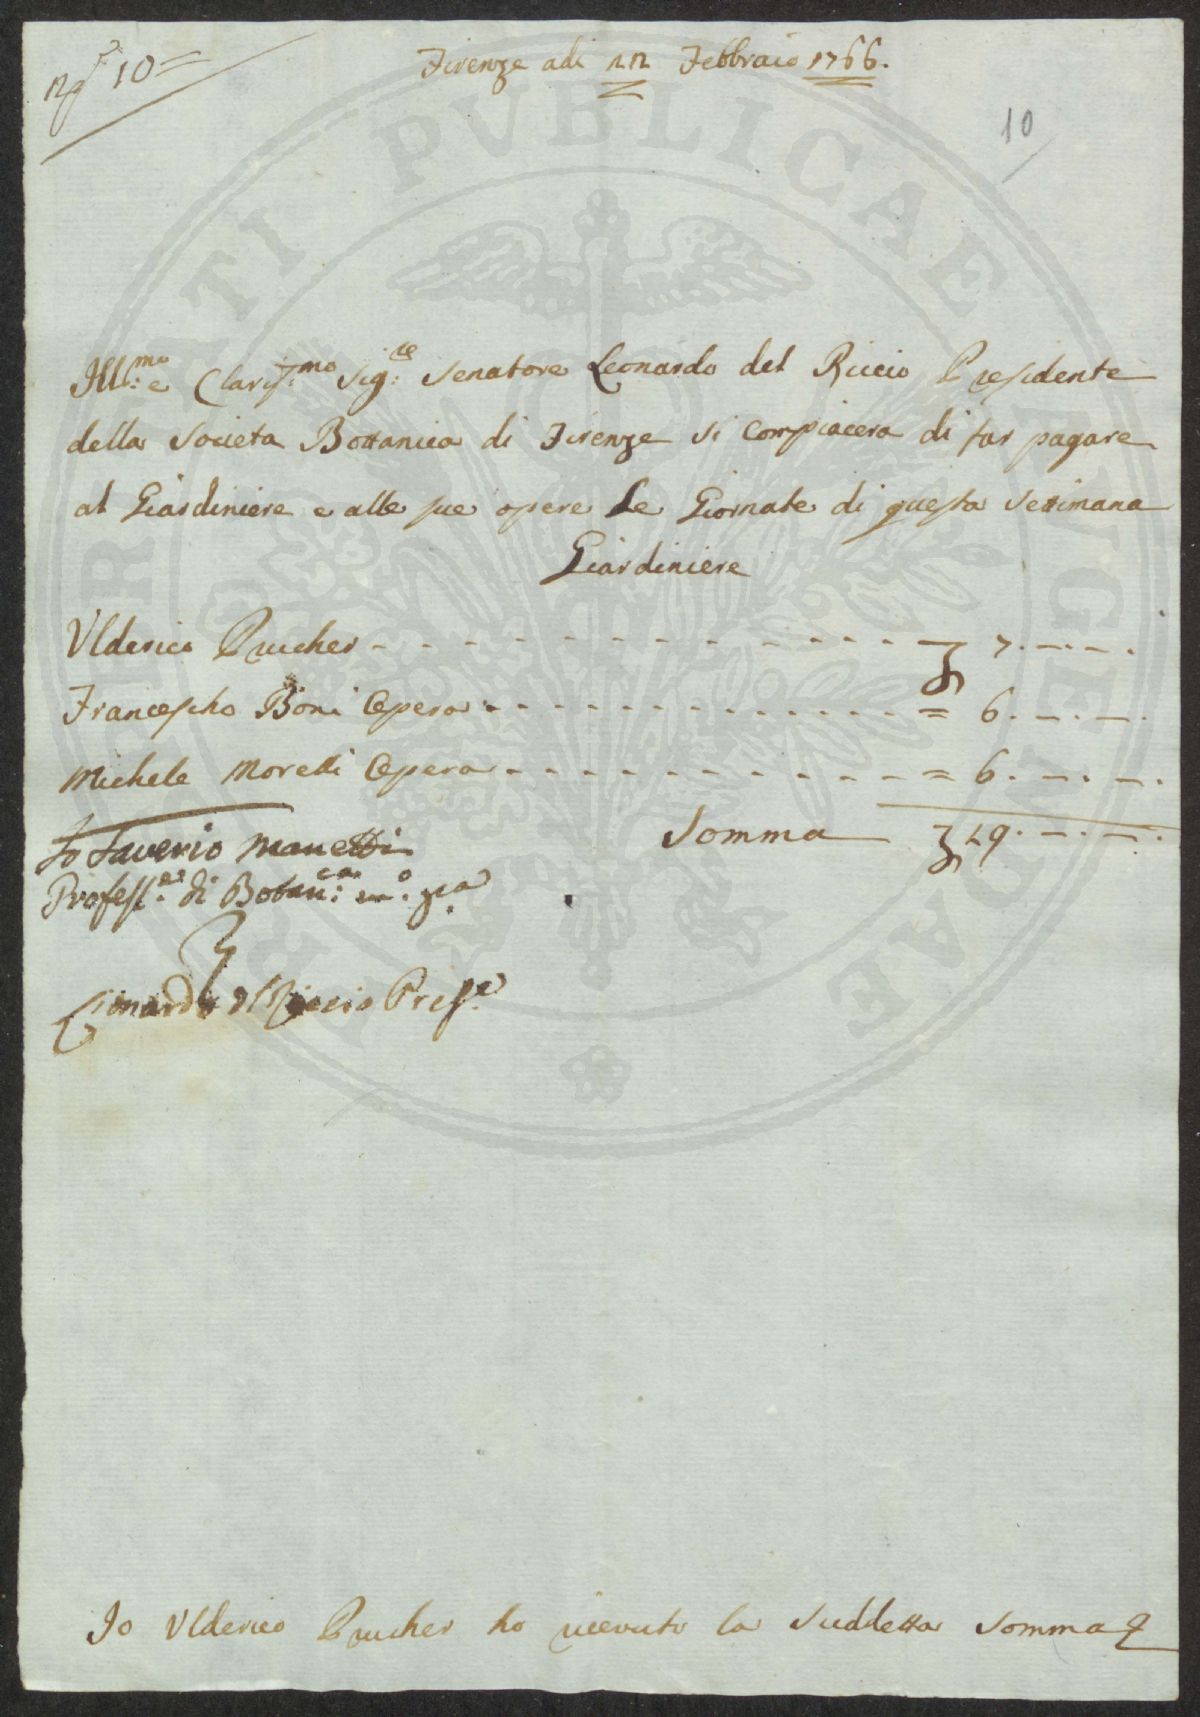 N.º 10=
Firenze adi 22 Febbraio 1766.
10
Ill:mo e Clariss:mo Sig:re Senatore Leonardo del Riccio Presidente
della Societa Bottanica di Firenze si Compiacera di far pagare
al Giardiniere e alle sue opere Le Giornate di questa Settimana
Giardiniere
Ulderico Prucher - - - - - - - - - - - 7. — . — .
Francescho Boni Opera - - - - - - - - - - - = 6. — . — .
Michele Moretti Opera - - - - - - - - - - - = 6. — . — .
Somma 19. — . — .
Io Saverio Manetti
Profess.re di Botan:ca m.o p.a
Lionardo del Riccio Pres.e
Io Ulderico Prucher ho ricevuto la Suddetta Somma
PIETRATI PUBLICAE